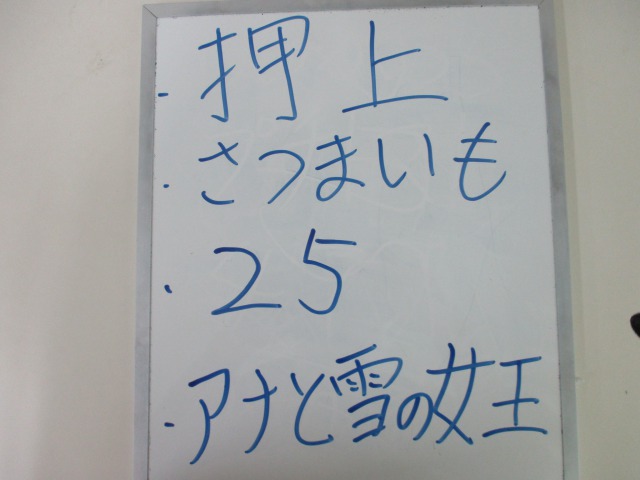 ・押上
・さつまいも
・25
・アナと雪の女王